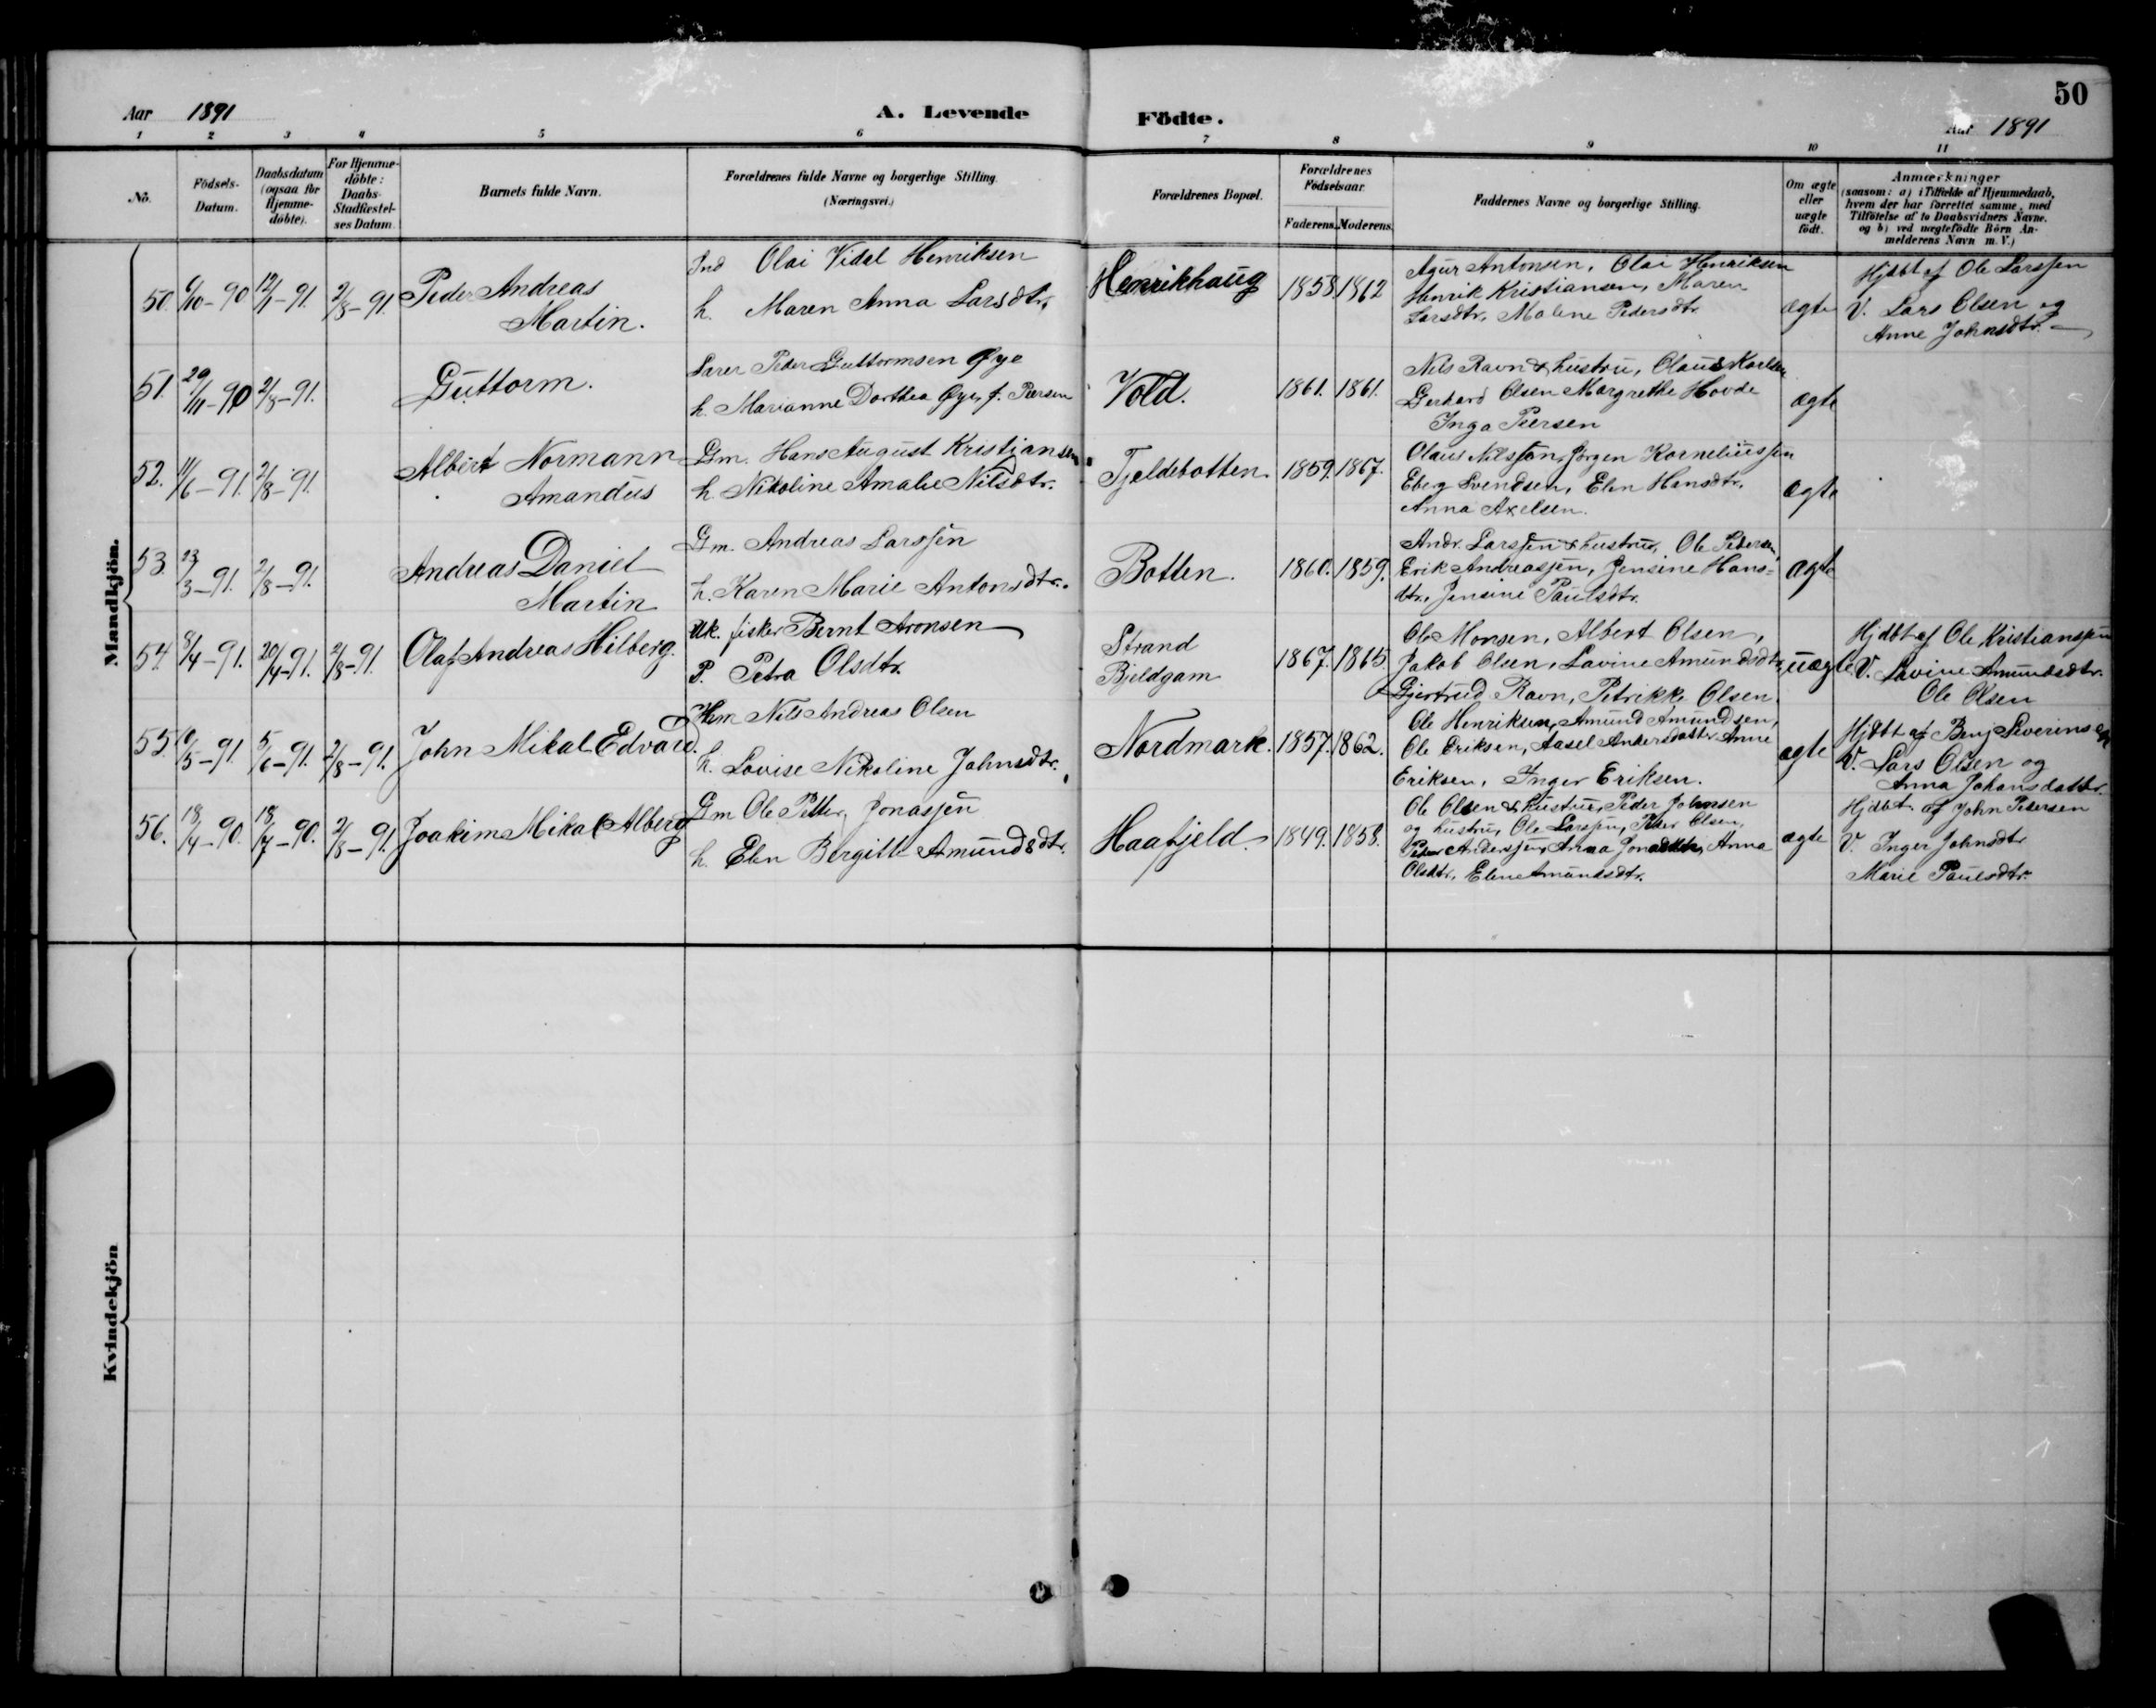 50
Aar 1891 A. Levende Födte. Aar 1891
1 2 3 4 5 6 7 8 9 10 11
No.
Födsels-
Datum.
Daabsdatum
(ogsaa for
Hjemme-
döbte).
For Hjemme-
döbte:
Daabs-
Stadfæstel-
ses Datum.
Barnets fulde Navn.
Forældrenes fulde Navne og borgerlige Stilling.
(Næringsvei.)
Forældrenes Bopæl.
Forældrenes
Födselsaar.
Faderens. Moderens.
Faddernes Navne og borgerlige Stilling.
Om ægte
eller
uægte
födt.
Anmærkninger
(saasom: a) i Tilfælde af Hjemmedaab,
hvem der har forrettet samme, med
Tilföielse af to Daabsvidners Navne.
og b) ved uægtefödte Börn An-
melderens Navn m. V.)
Mandkjön.
50. 6/10-90 12/1-91. 2/8-91.
Peder Andreas
Martin.
Ind Olai Vidal Henriksen
h. Maren Anna Larsdtr.
Henrikhaug
1858. 1862
Agur Antonsen, Olai Henriksen
Henrik Kristiansen, Maren
Larsdtr, Malene Pedersdtr.
ægte
Hjdbt af Ole Larssen
V. Lars Olsen og
Anne Johnsdtr.
51. 29/11-90 2/8-91.
Guttorm.
Lærer Peder Guttormsen Øye
h. Marianne Dorthea Øye, f. Pæersen
Vold.
1861. 1861.
Nils Ravn & hustru, Olaus Karlsen
Gerhard Olsen Margrethe Hovde
Inga Peersen
ægte
52. 11/6-91. 2/8-91.
Albert Normann
Amandus
Gm. Hans August Kristjansen
h. Nikoline Amalie Nilsdtr.
Tjeldebotten.
1859. 1867.
Olaus Nilssen, Jørgen Korneliussen
Eberg Svendsen, Elen Hansdtr.
Anna Axelsen.
ægte
53. 23/3-91. 2/8-91.
Andreas Daniel
Martin
Gm. Andreas Larssen
h. Karen Marie Antonsdtr.
Botten.
1860. 1859.
Andr. Larssen & hustru, Ole Pedersen,
Erik Andreassen, Jensine Hans=
dtr., Jensine Paulsdtr.
ægte
54. 8/4-91. 20/4-91. 2/8-91.
Olaf Andreas Hilberg.
Uk. fisker Bernt Aronsen
P. Petra Olsdtr.
Strand
Bjeldgam
1867. 1865.
Ole Monsen, Albert Olsen,
Jakob Olsen, Lavine Amundsdtr,
Gjertrud Ravn, Petrikke Olsen.
uægte
Hjdbt af Ole Kristianssen
V. Lavine Amundsdtr.
Ole Olsen
55. 10/5-91. 5/6-91. 2/8-91.
John Mikal Edvard.
Hm Nils Andreas Olsen
h. Lovise Nikoline Johnsdtr.
Nordmark.
1857. 1862.
Ole Henriksen, Amund Amundsen,
Ole Eriksen, Aasel Andersdatter Anne
Eriksen, Inger Eriksen.
ægte
Hjdbt af Benj Severinsen
V. Lars Olsen og
Anna Johansdatter.
56. 18/4-90. 18/7-90. 2/8-91.
Joakim Mikal Alberg
Gm Ole Petter Jonassen
h. Elen Bergitte Amundsdtr.
Haafjeld
1849. 1858.
Ole Olsen & hustru, Peder Johnsen
og hustru, Ole Larssen, Peder Olsen,
Peder Anderssen, Anna Jonasdtr, Anna
Olsdtr, Eline Amundsdtr.
ægte
Hjdbt af John Pedersen
V. Inger Johnsdtr
Marie Paulsdtr.
Kvindekjön